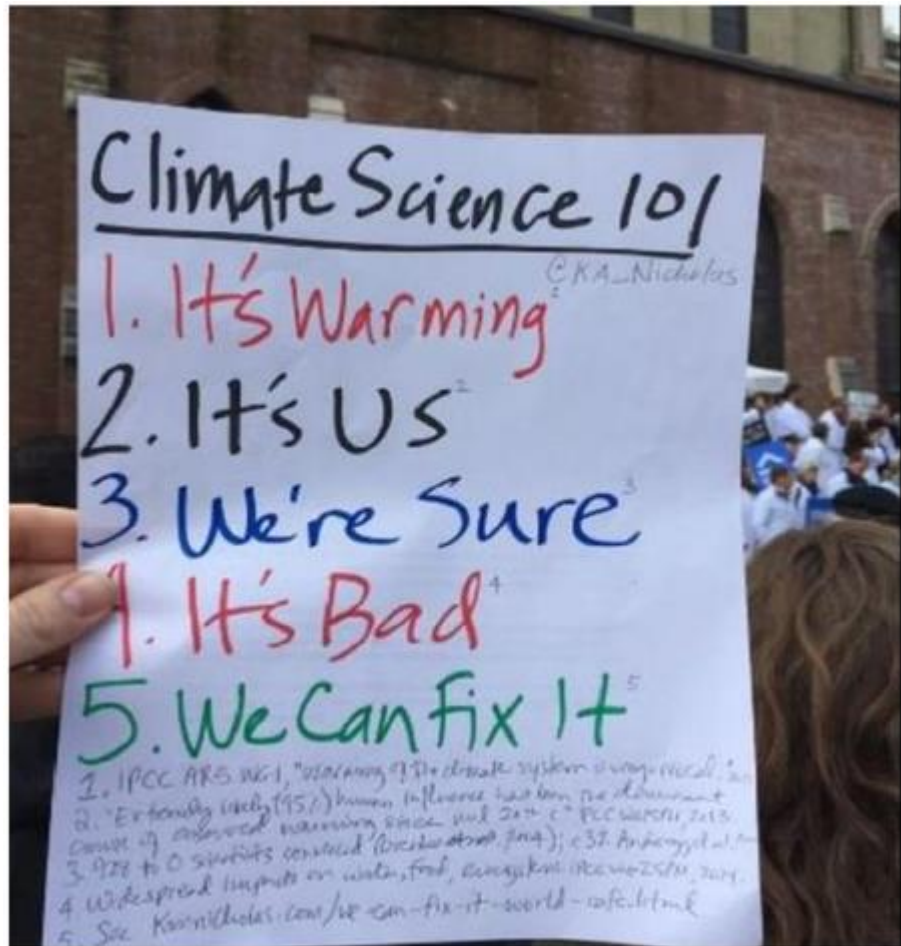 Climate Science 101
@KA_Nicholas
1. It's Warming
2. It's Us 2
3. We're Sure 3
4. It's Bad 4
5. We Can Fix It 5
1. IPCC AR5 WG1, "Warming of the climate system is unequivocal."
2. "Extremely likely (95%) human influence has been the dominant
cause of observed warming since mid 20th c" IPCC 2013
3. 928 to 0
4. Widespread impacts on water, food,
5. See Kimnicholas.com/we-can-fix-it-world-cafe.html